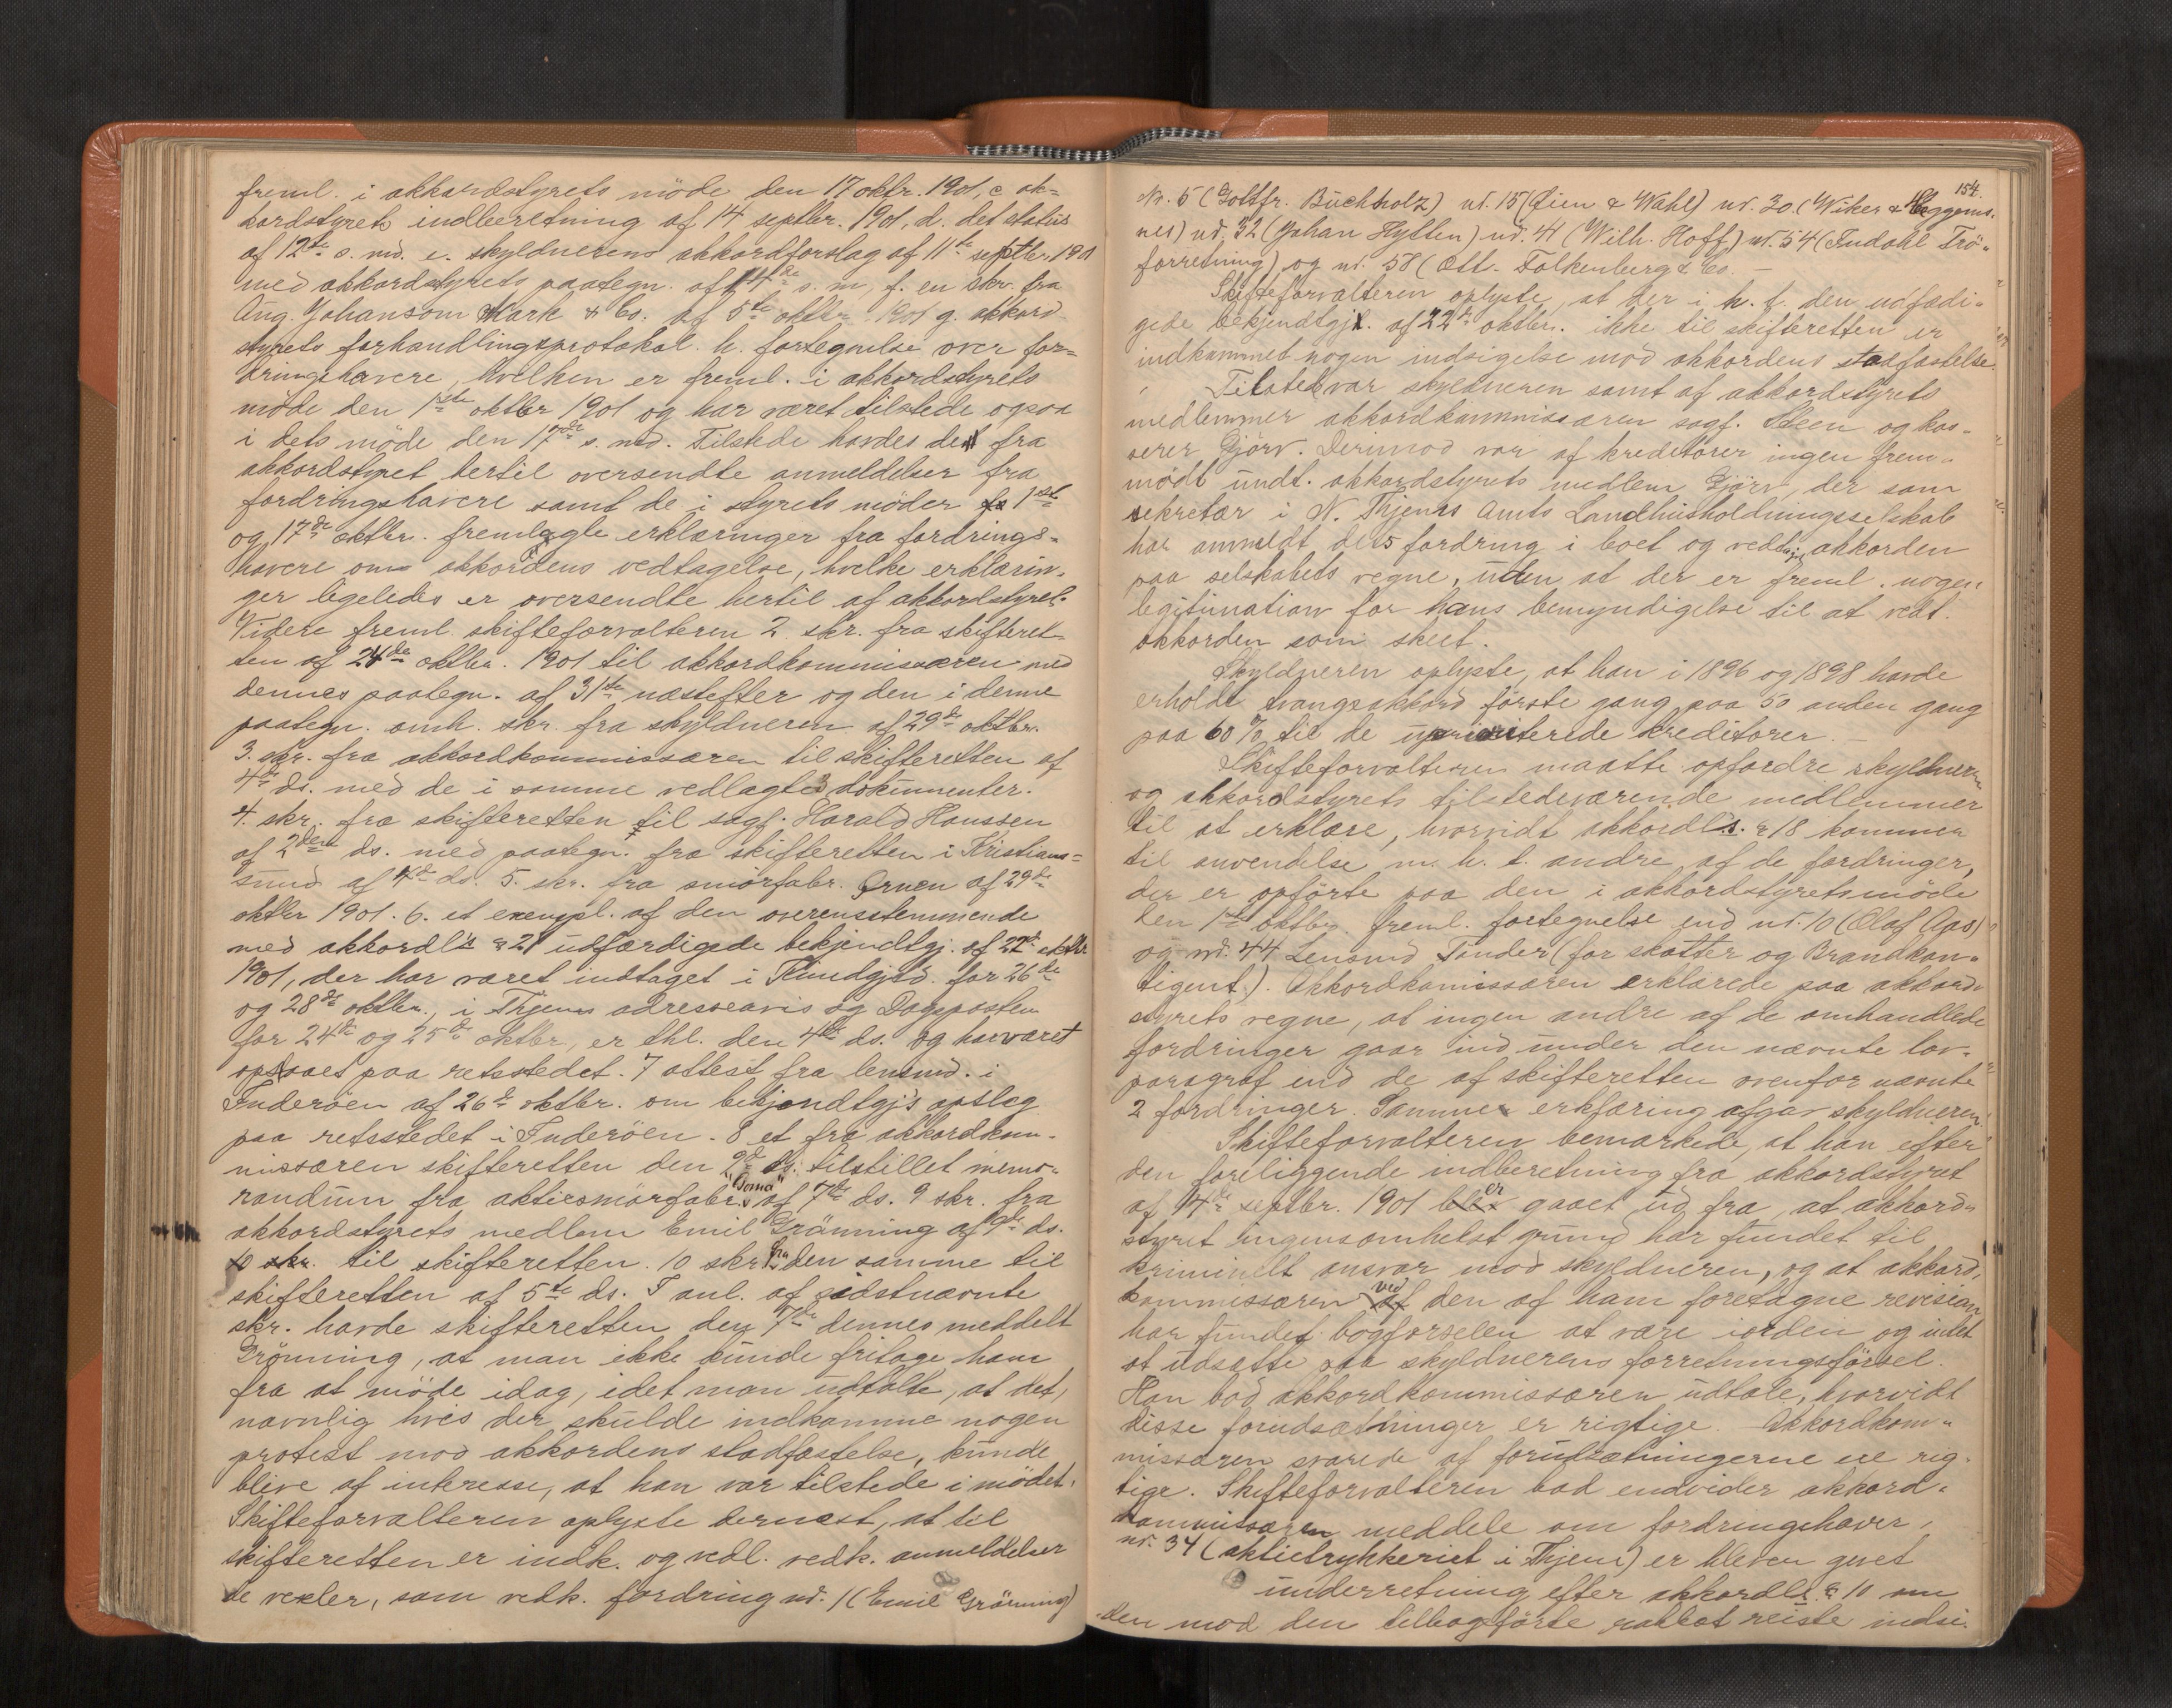 freml. i akkordstyrets möde den 17 oktr. 1901, c ak=
kordstyrets indberetning af 14 septbr. 1901, d. det status
af 12te s. md. e. skyldnerens akkordforslag af 11te septbr 1901
med akkordstyrets paategn. af 14de s. m, f. en skr. fra
Aug. Johanson Mark & Co. af 5te oktbr 1901 g. akkord
styrets forhandlingsprotokol. h. fortegnelse over for=
dringshavere, hvilken er freml. i akkordstyrets
möde den 1ste oktbr 1901 og har været tilstede ogsaa
i dets möde den 17de s. md. Tilstede havdes de fra
akkordstyret hertil oversendte anmeldelser fra
fordringshavere samt de i styrets möder 1ste
og 17de oktbr. fremlagte erklæringer fra fordrings=
havere om akkordens vedtagelse, hvilke erklærin=
ger ligeledes er oversendte hertil af akkordstyret.
Videre freml. skifteforvalteren 2 skr. fra skifteret=
ten af 24de oktbr. 1901 til akkordkommissæren med
dennes paategn. af 31te næstefter og den i denne
paategn. omh. skr. fra skyldneren af 29de oktbr.
3. skr. fra akkordkommissæren til skifteretten af
4de ds. med de i samme vedlagte 3 dokumenter.
4. skr. fra skifteretten til sagf. Harald Hanssen
af 2den ds. med paategn. fra skifteretten i Kristians=
sund af 4de ds. 5. skr. fra smörfabr. Ørnen af 29de
oktbr 1901. 6. et exempl. af den overensstemmende
med akkordl's § 21 udfærdigede bekjendtgj. af 22de oktbr.
1901, der har været indtaget i Kundgjtid. for 26de
og 28de oktbr., i Thjems adresseavis og Dagsposten
for 24de og 25de oktbr, er thl. den 4de ds. og har været
opslaaet paa retsstedet. 7 attest fra lensmd. i
Inderöen af 26de oktbr. om bekjendtgjs opslag
paa retsstedet i Inderöen. 8 et fra akkordkom=
missæren skifteretten den 9de ds. tilstillet memo=
randum fra aktiesmörfabr. "Borna" af 7de ds. 9 skr. fra
akkordstyrets medlem Emil Grönning af 9de ds.
10 skr. til skifteretten. 10 skr. fra den samme til
skifteretten af 5te ds. I anl. af sidstnævnte
skr. havde skifteretten den 7de dennes meddelt
Grönning, at man ikke kunde fritage ham
fra at möde idag, idet man udtalte, at det,
navnlig hvis der skulde indkomme nogen
protest mod akkordens stadfæstelse, kunde
blive af interesse, at han var tilstede i mödet.
Skifteforvalteren oplyste dernæst, at til
skifteretten er indk. og vedl. vedk. anmeldelser
de vexler, som vedk. fordring nr. 1 (Emil Grönning)
154.
Nr. 5 (Gottfr. Büchholz) nr. 15 (Øien & Wahl) nr. 30 (Wiker & Heggems=
nes) nr. 32 (Johan Hytten) nr. 41 (Wilh. Hoff) nr. 54 (Indahl Trö=
forretning) og nr. 58 (Ott. Falkenburg & Co. —
Skifteforvalteren oplyste, at der i h. t. den udfædi=
gede bekjendtgj. af 22de oktbr. ikke til skifteretten er
indkommet nogen indsigelse mod akkordens stadfæstelse.
Tilstede var skyldneren samt af akkordstyrets
medlemmer akkordkommissæren sagf. Steen og kas=
serer Gjörv. Derimod var af kreditorer ingen frem=
mödt undt. akkordstyrets medlem Gjörv, der som
sekretær i N. Thjems Amts Landhusholdningsselskab
har anmeldt dets fordring i boet og vedtaget akkorden
paa selskabets vegne, uden at der er freml. nogen
legitimation for hans bemyndigelse til at vedt.
akkorden som skeet.
Skyldneren oplyste, at han i 1896 og 1898 havde
erholdt tvangsakkord förste gang paa 50 anden gang
paa 60 % til de uprioriterede kreditorer.
Skifteforvalteren maatte opfordre skyldneren
og akkordstyrets tilstedeværende medlemmer
til at erklære, hvorvidt akkordl's. § 18 kommer
til anvendelse m. h. t. andre af de fordringer,
der er opförte paa den i akkordstyretsmöde
den 1ste oktbr. freml. fortegnelse end nr. 10 (Olaf Aas)
og nr. 44 Lensmd Tinder (for skatter og Brandkon=
tigent.). Akkordkomissæren erklærede paa akkord=
styrets vegne, at ingen andre af de omhandlede
fordringer gaar ind under den nævnte lov=
paragraf end de af skifteretten ovenfor nævnte
2 fordringer. Samme erklæring afgav skyldneren.
Skifteforvalteren bemærkede, at han efter
den foreliggende indberetning fra akkordstyret
af 14de septbr. 1901 er gaaet ud fra, at akkord=
styret ingensomhelst grund har fundet til
kriminelt ansvar mod skyldneren, og at akkord=
kommissæren ved den af ham foretagne revision
har fundet bogförselen at være iorden og intet
at udsætte paa skyldnerens forretningsförsel.
Han bad akkordkommissæren udtale, hvorvidt
disse forudsætninger er rigtige. Akkordkom=
missæren svarede at forudsætningerne er rig=
tige. Skifteforvalteren bad endvider akkord=
kommissæren meddele om fordringshaver,
nr. 34 (aktietrykkeriet i Thjem) er bleven givet
underretning efter akkordls. § 10 om
den mod den tilbageförte rabbat reiste indsi=